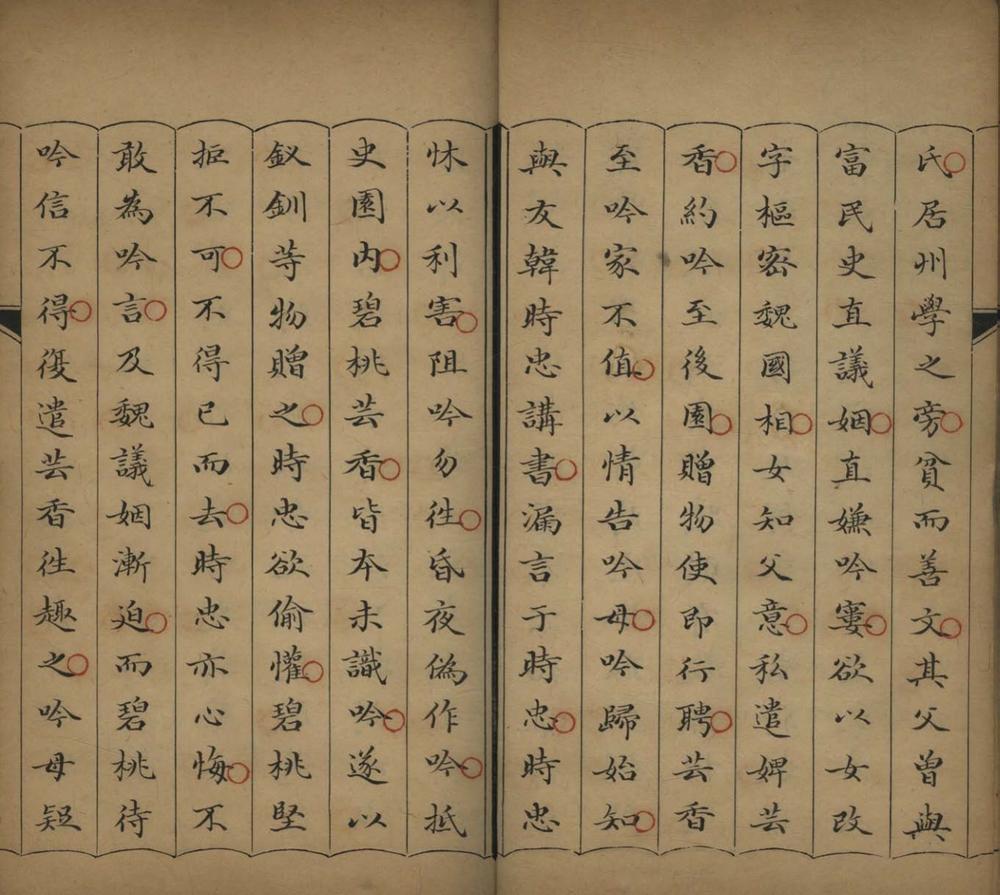 氏居州學之旁貧而善文其父曾與
富民史直議姻直嫌吟寠欲以女改
字樞密魏國相女知父意私遣婢芸
香約吟至後園贈物使即行聘芸香
至吟家不值以情告吟母吟歸始知
與友韓時忠講書漏言于時忠時忠
怵以利害阻吟勿徃昏夜偽作吟抵
史園内碧桃芸香皆本未識吟遂以
釵釧等物贈之時忠欲偷懽碧桃堅
拒不可不得已而去時忠亦心悔不
敢為吟言及魏議姻漸迫而碧桃待
吟信不得復遣芸香徃趣之吟母疑